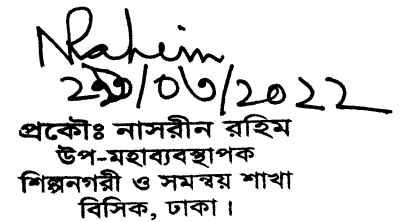 NRahim
/03/2022
প্রকৌঃ নাসরীন রহিম
উপ-মহাব্যবস্থাপক
শিল্পনগরী ও সমন্বয় শাখা
বিসিক, ঢাকা।